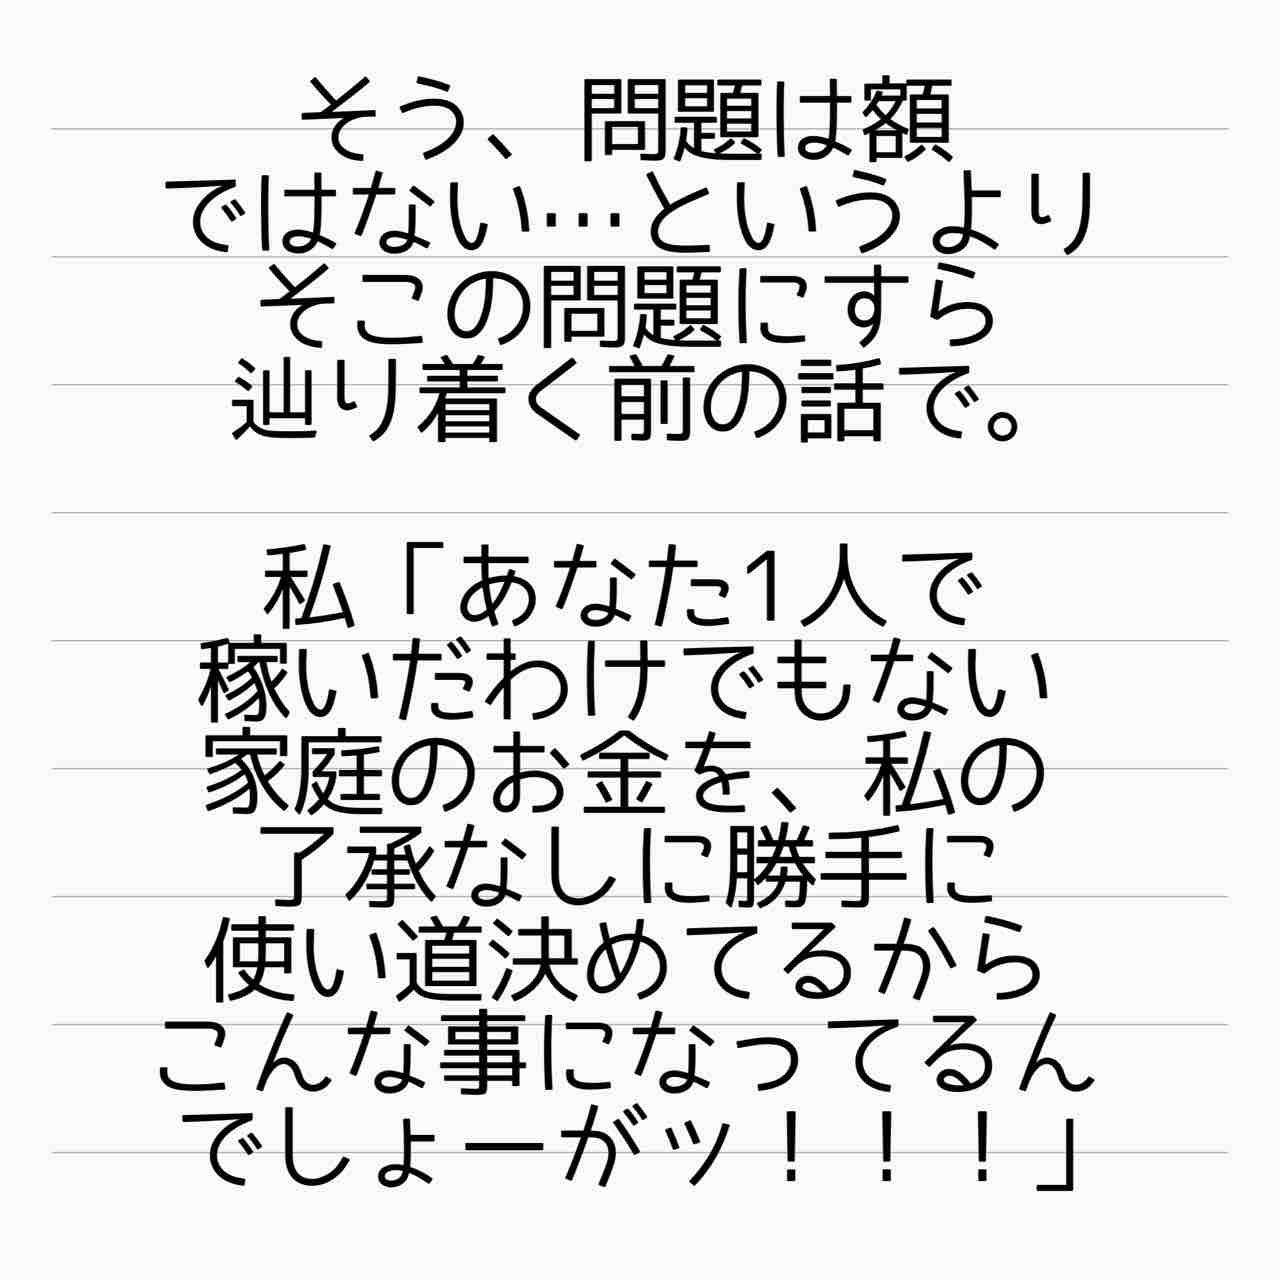 そう、問題は額
ではない…というより
そこの問題にすら
辿り着く前の話で。
私「あなた1人で
稼いだわけでもない
家庭のお金を、私の
了承なしに勝手に
使い道決めてるから
こんな事になってるん
でしょーがッ！！！」